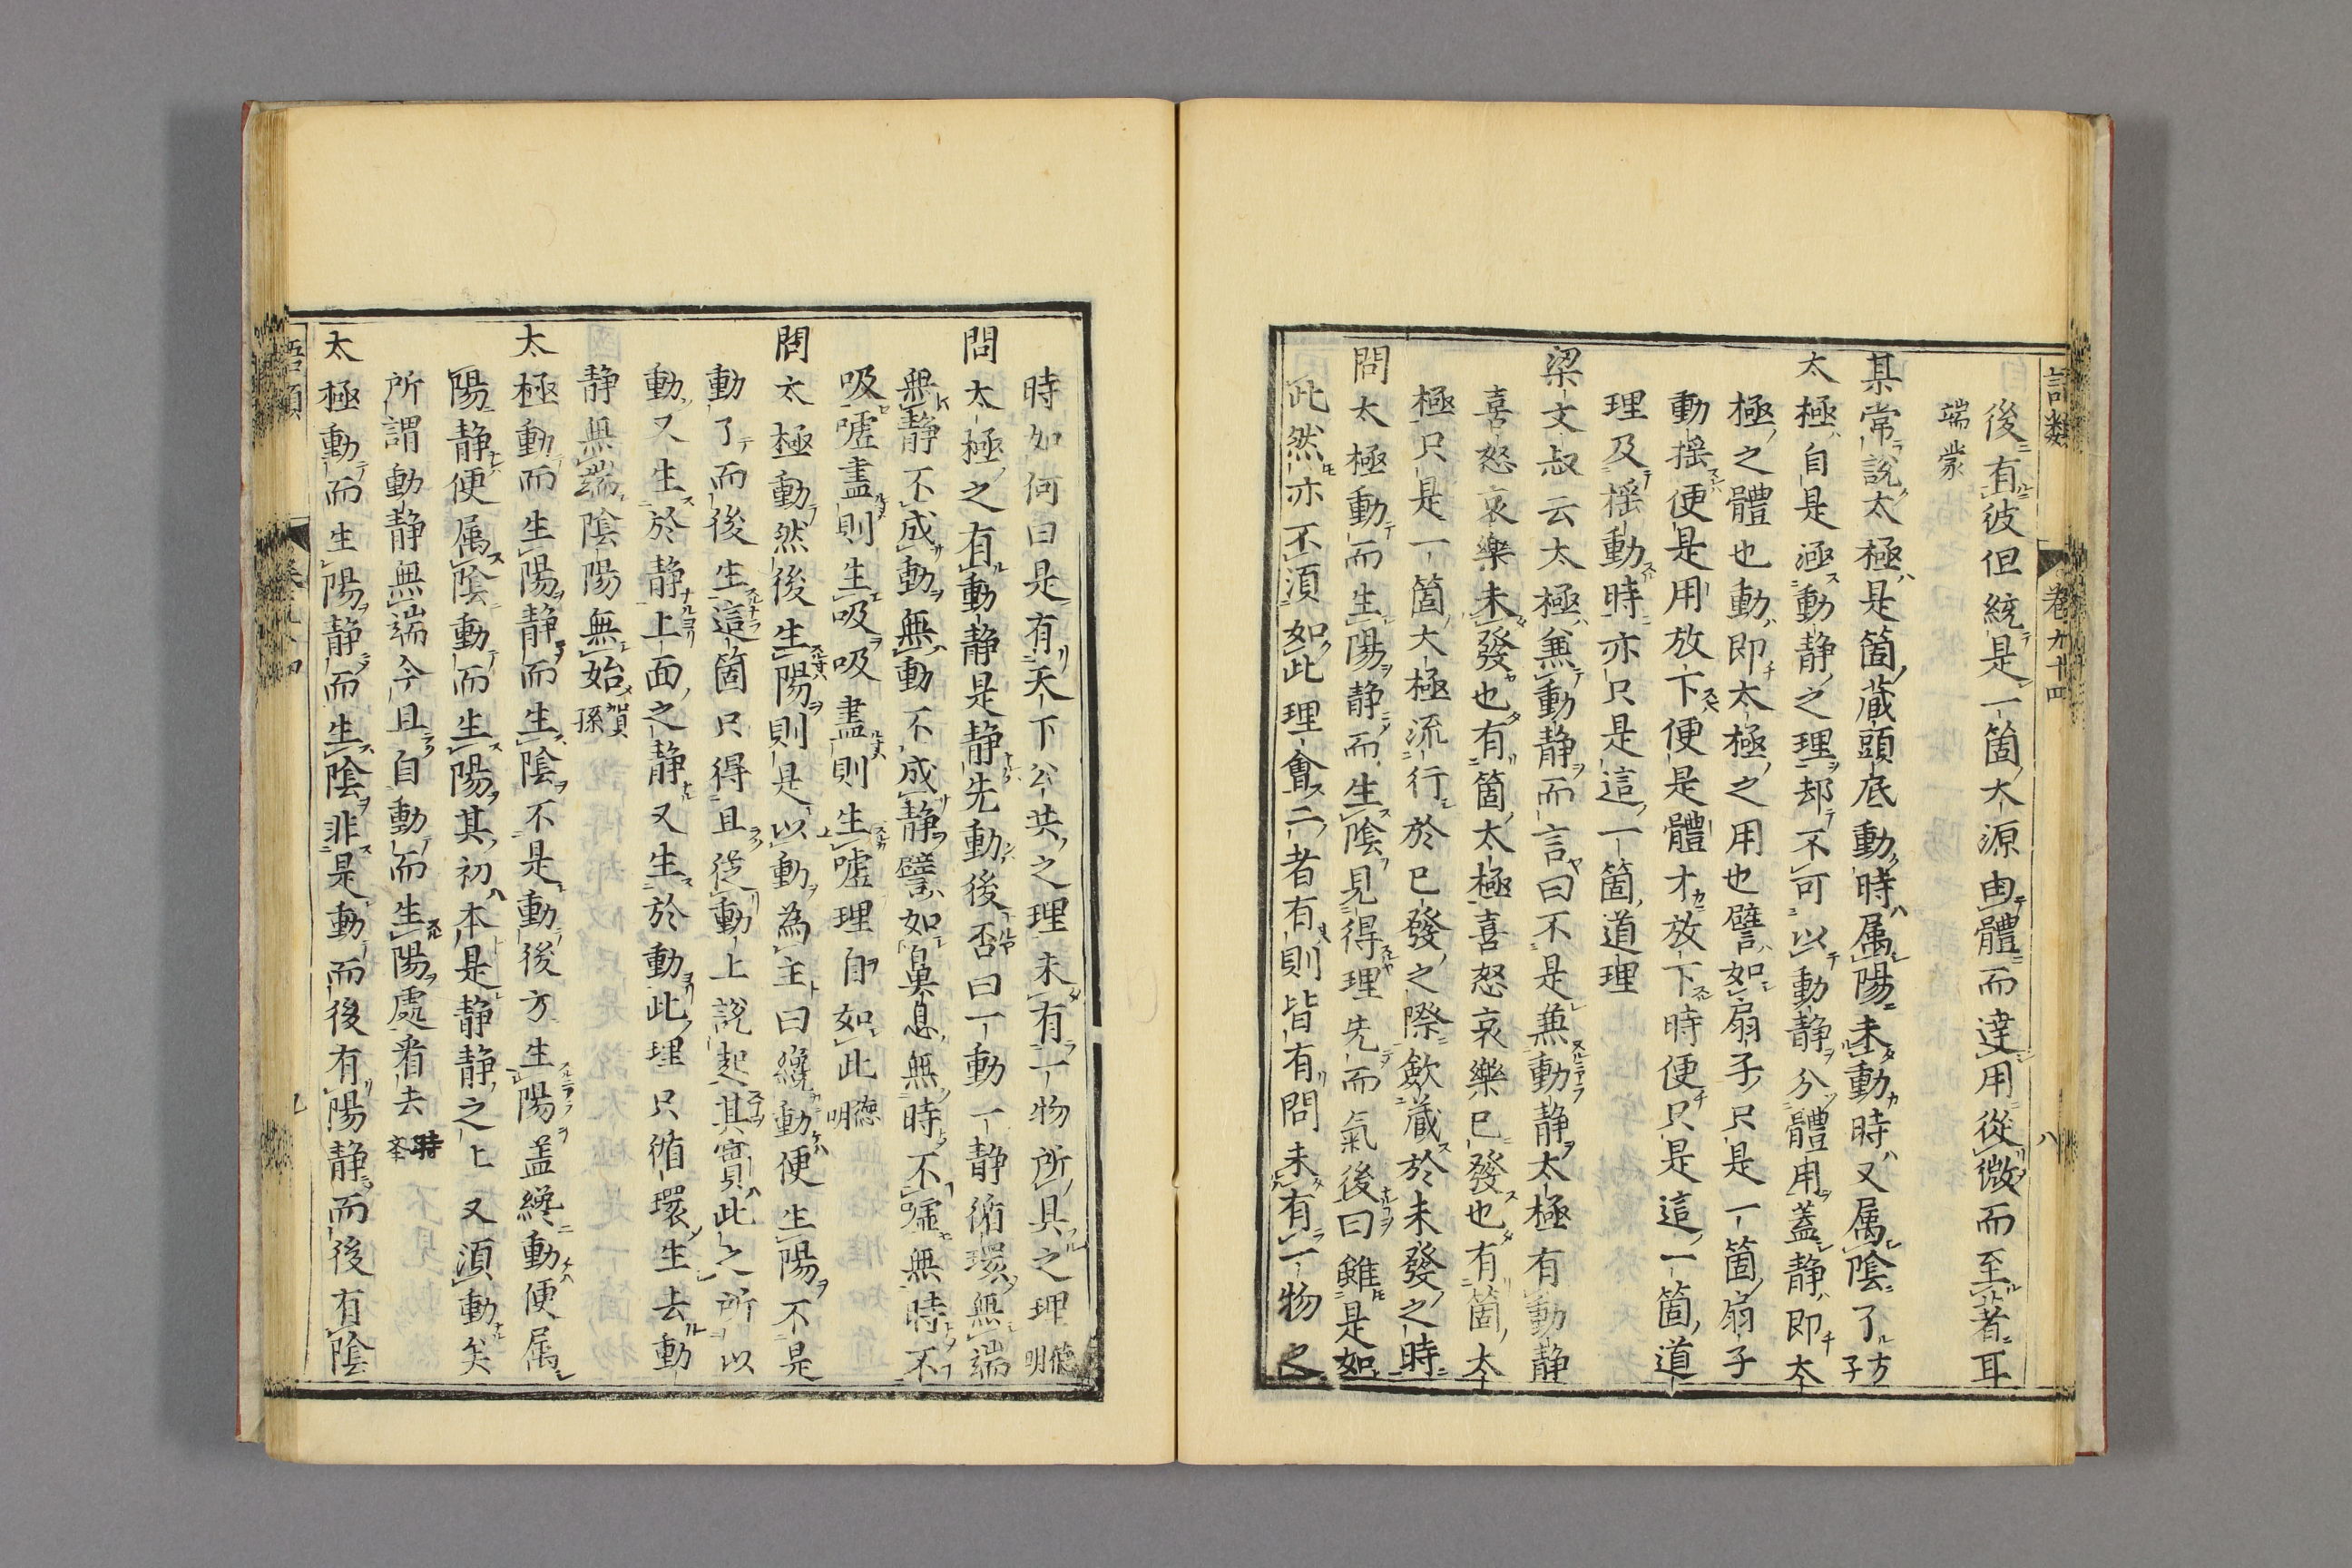 語類
卷九十四
八
後有彼但統是一箇大源由體而達用從微而至著耳
端蒙
某常說太極是箇藏頭底動時屬陽未動時又屬陰了方子
太極自是涵動靜之理却不可以動靜分體用蓋靜即太
極之體也動即太極之用也譬如扇子只是一箇扇子
動搖便是用放下便是體才放下時便只是這一箇道
理及搖動時亦只是這一箇道理
梁文叔云太極兼動靜而言曰不是兼動靜太極有動靜
喜怒哀樂未發也有箇太極喜怒哀樂已發也有箇太
極只是一箇太極流行於已發之際歛藏於未發之時
問太極動而生陽靜而生陰見得理先而氣後曰雖是如
此然亦不須如此理會二者有則皆有問未有一物之
時如何曰是有天下公共之理未有一物所具之理德明
問太極之有動靜是靜先動後否曰一動一靜循環無端
無靜不成動無動不成靜譬如鼻息無時不噓無時不
吸噓盡則生吸吸盡則生噓理自如此德明
問太極動然後生陽則是以動為主曰纔動便生陽不是
動了而後生這箇只得且從動上說起其實此之所以
動又生於靜上面之靜又生於動此理只循環生去動
靜無端陰陽無始賀孫
太極動而生陽靜而生陰不是動後方生陽蓋纔動便屬
陽靜便屬陰動而生陽其初本是靜靜之上又須動矣
所謂動靜無端今且自動而生陽處看去時擧
太極動而生陽靜而生陰非是動而後有陽靜而後有陰
語類
九